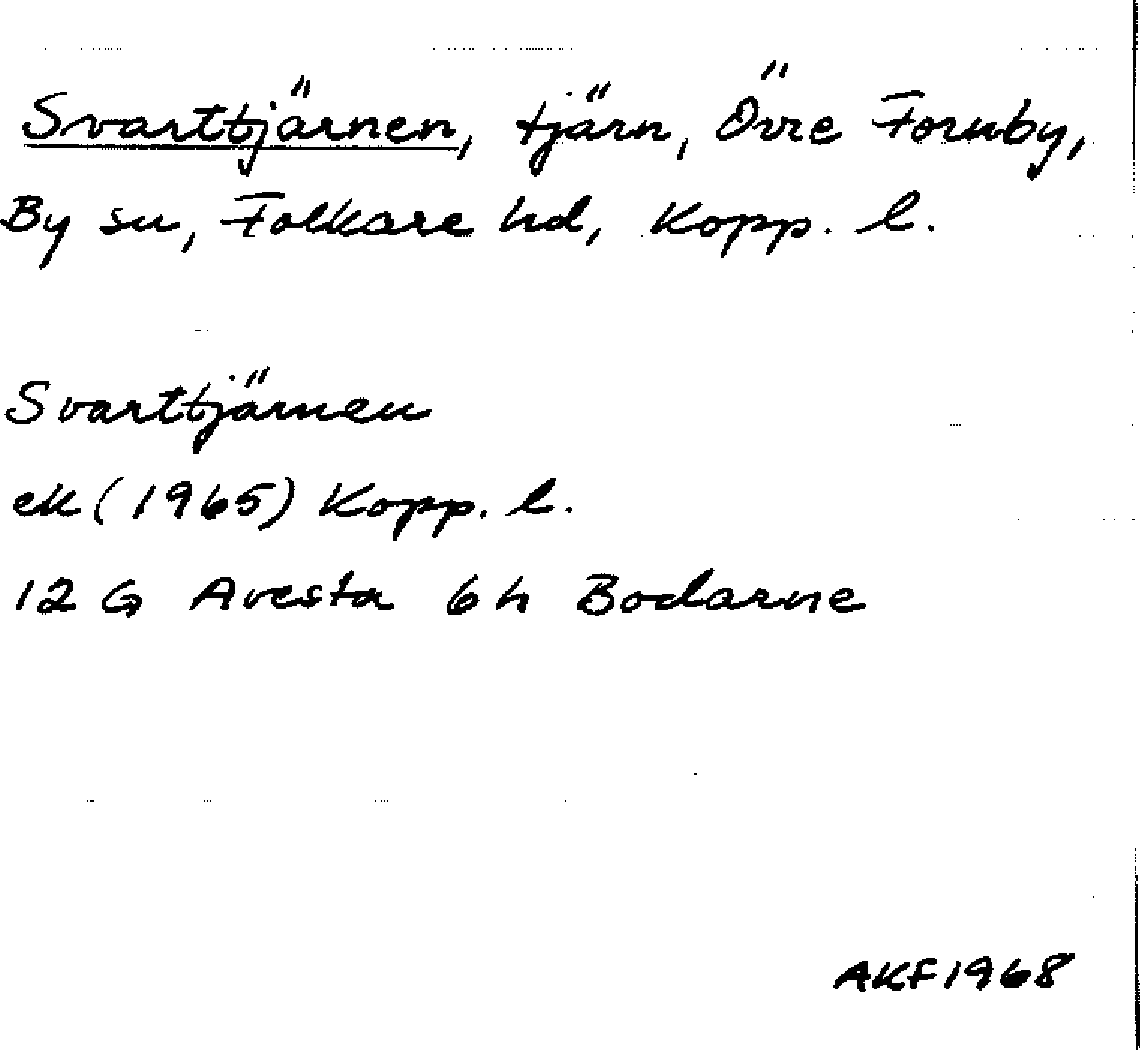 Svarttjärnen, tjärn, Övre Fornby,
By sn, Folkare hd, Kopp. l.
Svarttjärnen
ek (1965) Kopp. l.
12 G Avesta 6 h Bodarne
AKF 1968